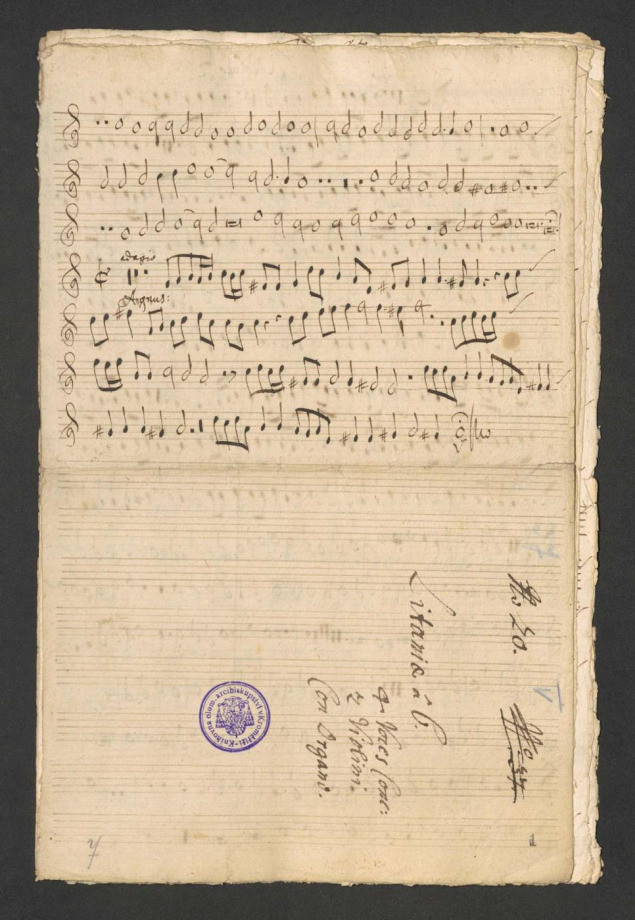 adagio
Agnus:
No 20.
V
Litaniæ à 6.
4 Voces Conc:
2 Violini.
Con Organo.
Knihovna olom. arcibiskupství v Kroměříži
1